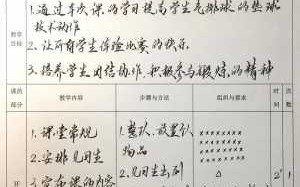 教学
目标
1.通过本次课的学习提高学生气排球的垫球
技术动作
2.让所有学生体验比赛的快乐
3.培养学生团结协作,积极参与锻炼的精神
课的
部分
教学内容
步骤与方法
组织与要求
时
间
次
1.课堂常规
2.安排见习生
3.宣布课的内容
1.整队、放置衣
物品
2.见习生出列
xxxxxxxx
xxxxxxxx
xxxxxxxx
xxxxxxxx
2'
1
开